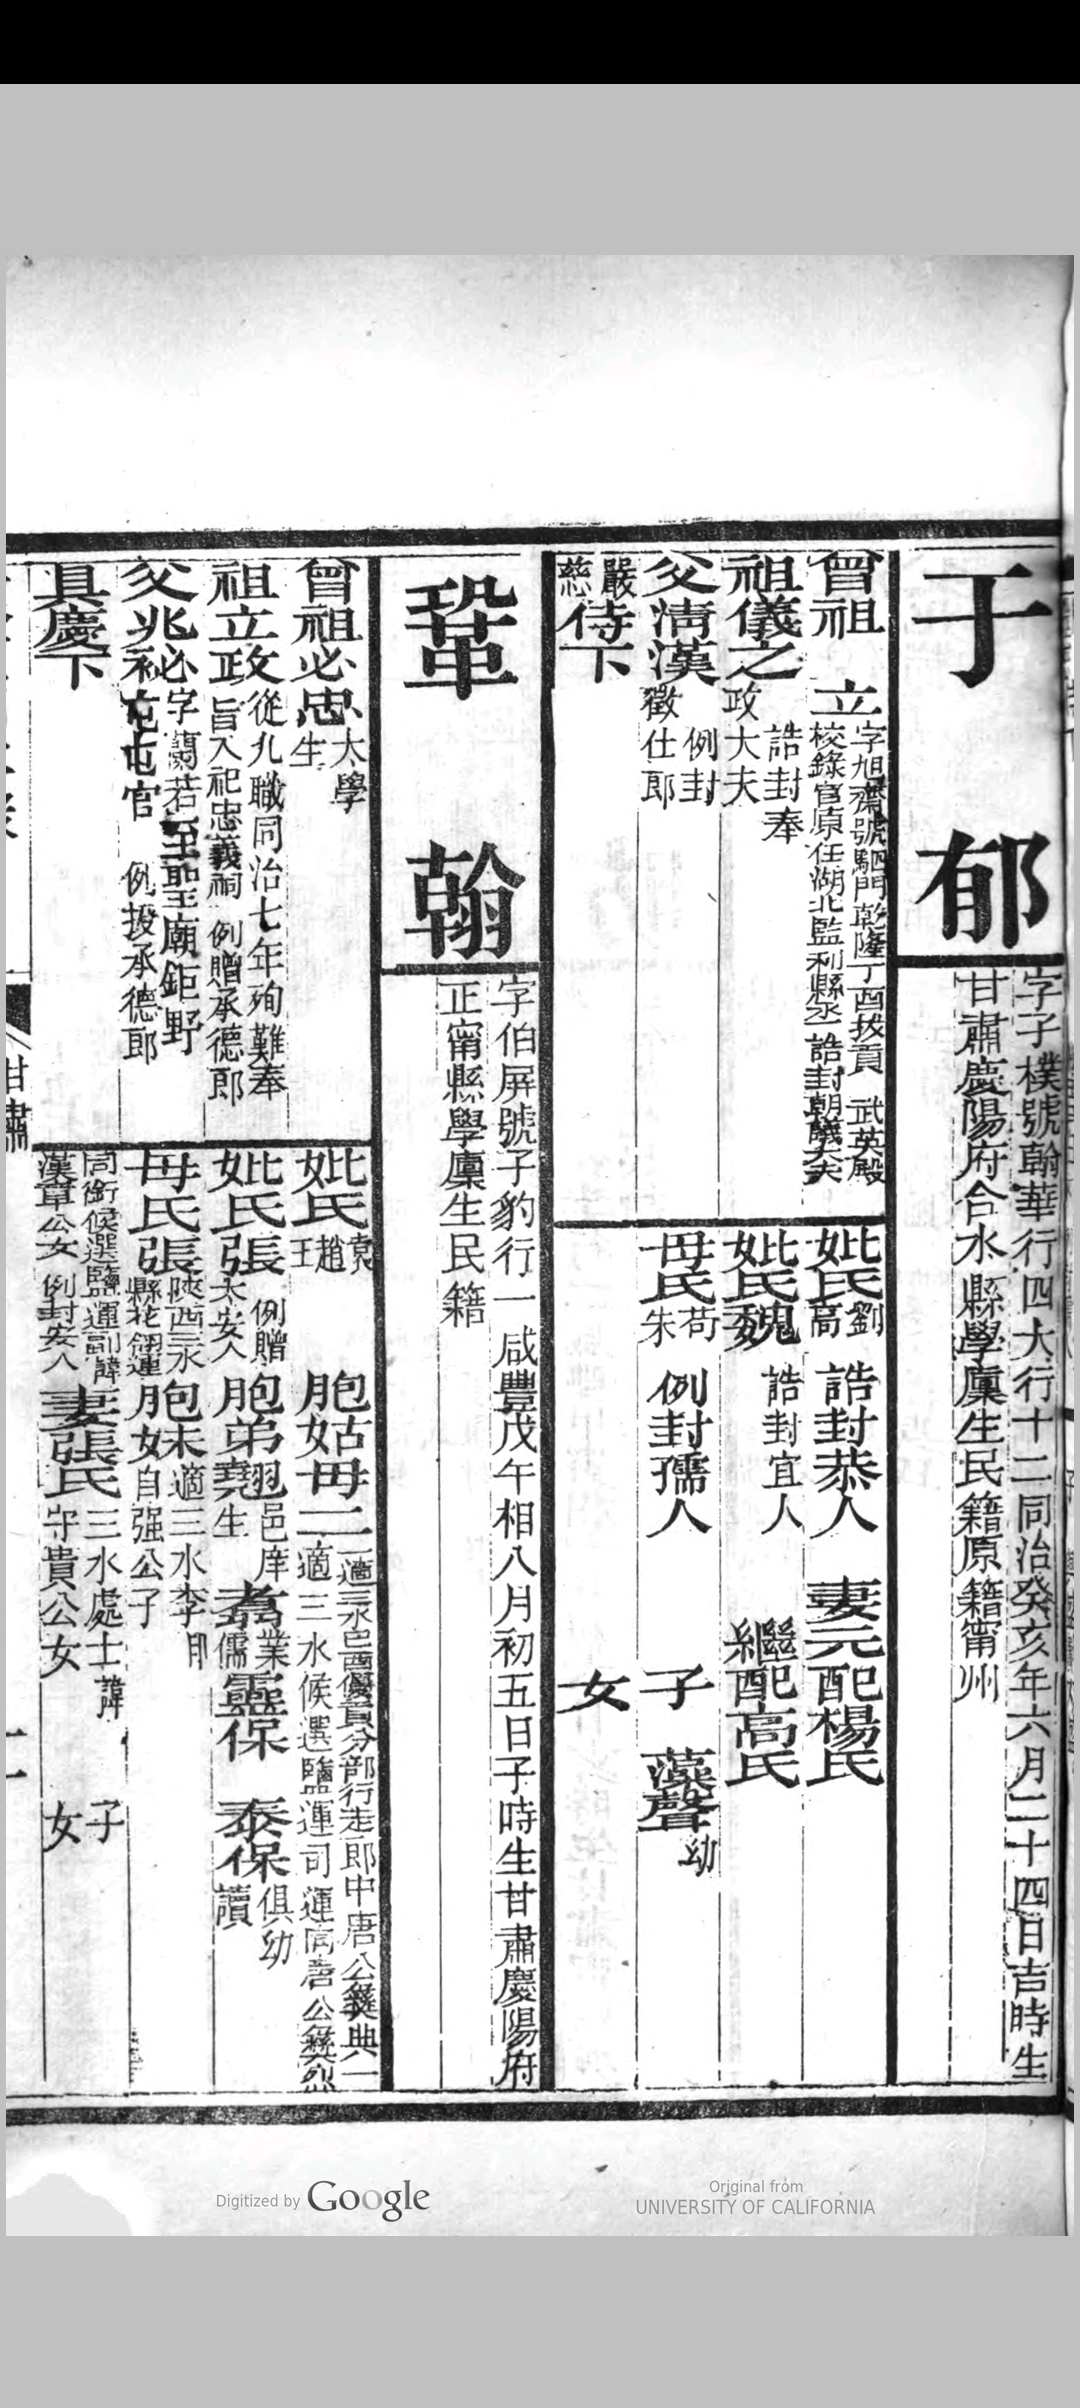 于郁
字子樸號翰華行四大行十二同治癸亥年六月二十四日吉時生
甘肅慶陽府合水縣學廩生民籍原籍甯州
曾祖立
字旭齋號駟門乾隆丁酉拔貢 武英殿
校錄官原任湖北監利縣丞 誥封朝議大夫
祖儀之
誥封奉
政大夫
父清漢
例封
徵仕郎
嚴慈侍下
妣氏劉高 誥封恭人
妣氏魏 誥封宜人
母氏苟朱 例封孺人
妻元配楊氏
繼配高氏
子 藻聲 幼
女
鞏翰
字伯屏號子豹行一咸豐戊午相八月初五日子時生甘肅慶陽府
正甯縣學廩生民籍
曾祖必忠 太學生
祖立政
從九職同治七年殉難奉
旨入祀忠義祠 例贈承德郎
父兆
字藹若至聖廟鉅野
屯屯官 例授承德郎
具慶下
妣氏袁趙王
妣氏張 例贈太安人
母氏張
陝西三水
縣花翎運
同銜候選鹽運副諱
漢章公女 例封安人
胞姑母二
一適三水邑酉優貢分部行走郎中唐公彝典一
適三水候選鹽運司運同唐公彝烈
胞弟堯翅 邑庠生
翥 業儒
靈保 泰保 俱幼讀
胞妹 適三水李
自强公子
妻張氏
三水處士諱
守貴公女
子
女
甘肅
Digitized by Google
Original from
UNIVERSITY OF CALIFORNIA